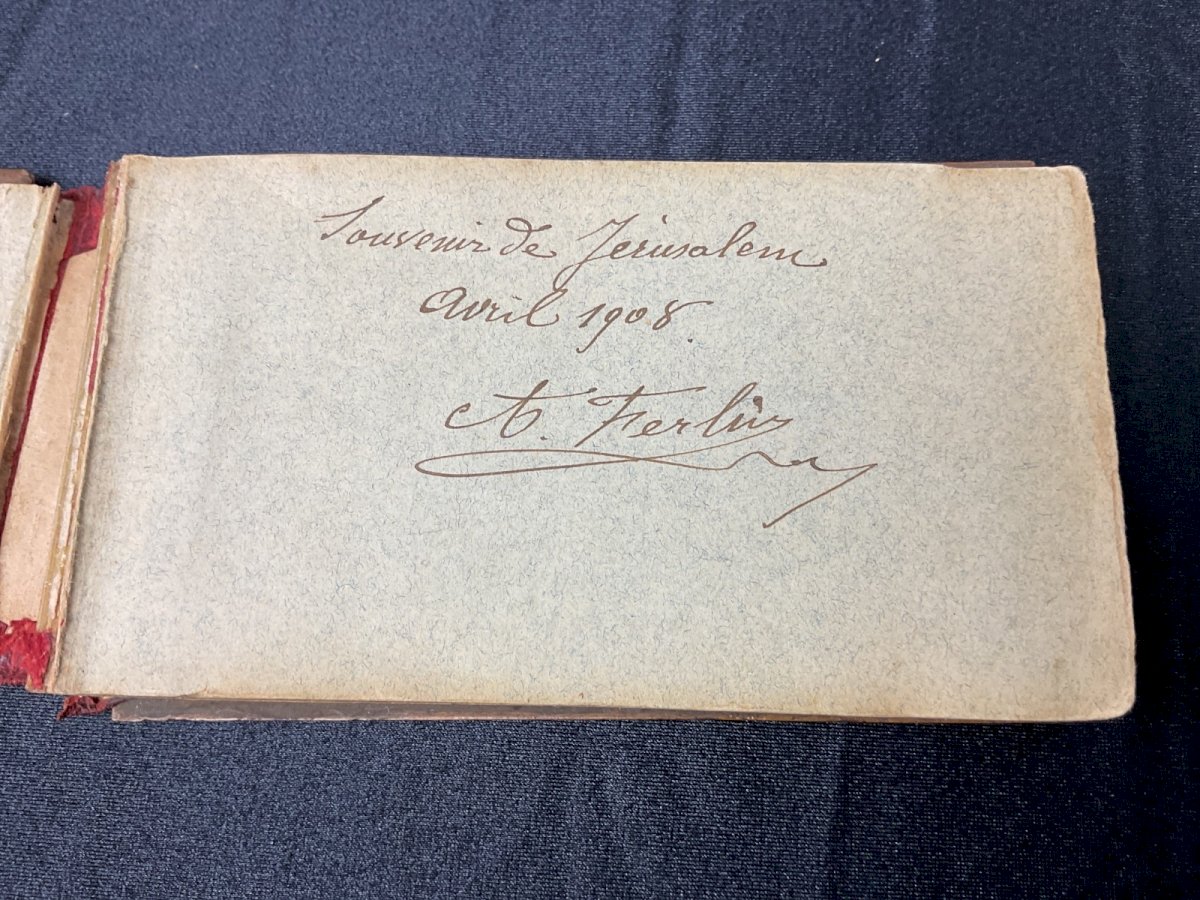 Souvenir de Jérusalem
Avril 1908.
A. Ferlus